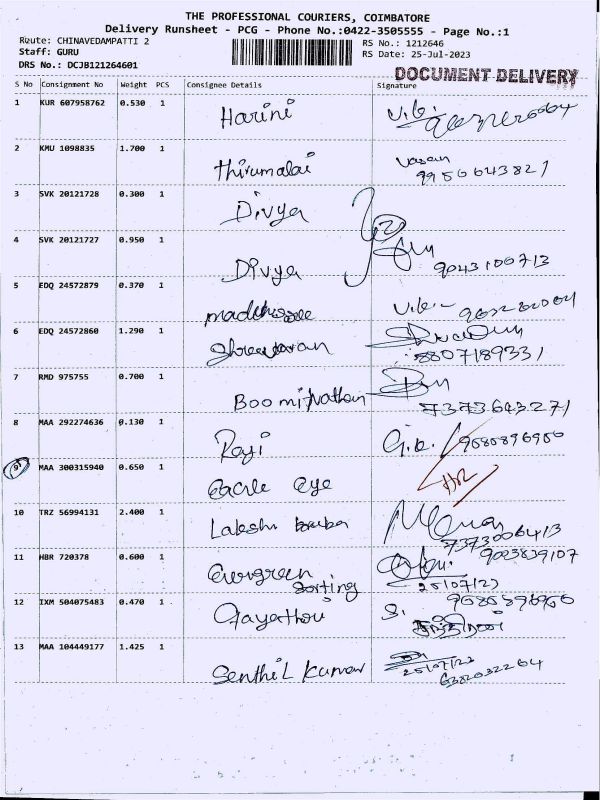 THE PROFESSIONAL COURIERS, COIMBATORE
Delivery Runsheet - PCG - Phone No.:0422-3505555 - Page No.:1
Route: CHINAVEDAMPATTI 2
RS No.: 1212646
Staff: GURU
RS Date: 25-Jul-2023
DRS No.: DCJB121264601
DOCUMENT DELIVERY
S No Consignment No Weight PCS Consignee Details Signature
1 KUR 607958762 0.530 1 Harini
2 KMU 1098835 1.700 1 Thirumalai Vasan
9950643821
3 SVK 20121728 0.300 1 Divya
4 SVK 20121727 0.950 1 Divya
9043100713
5 EDQ 24572879 0.370 1
6 EDQ 24572860 1.290 1
8807189331
7 RMD 975755 0.700 1 Boominathan
7373643271
8 MAA 292274636 0.130 1 Raji
9 MAA 300315940 0.650 1 Eye
10 TRZ 56994131 2.400 1 Lakshi
7373006413
11 HBR 720378 0.600 1 Evergreen
9023839107
Sorting 25/07/23
12 IXM 504075483 0.470 1 Gayathri S.
13 MAA 104449177 1.425 1 Senthil Kumar
25/07/23
6382032264